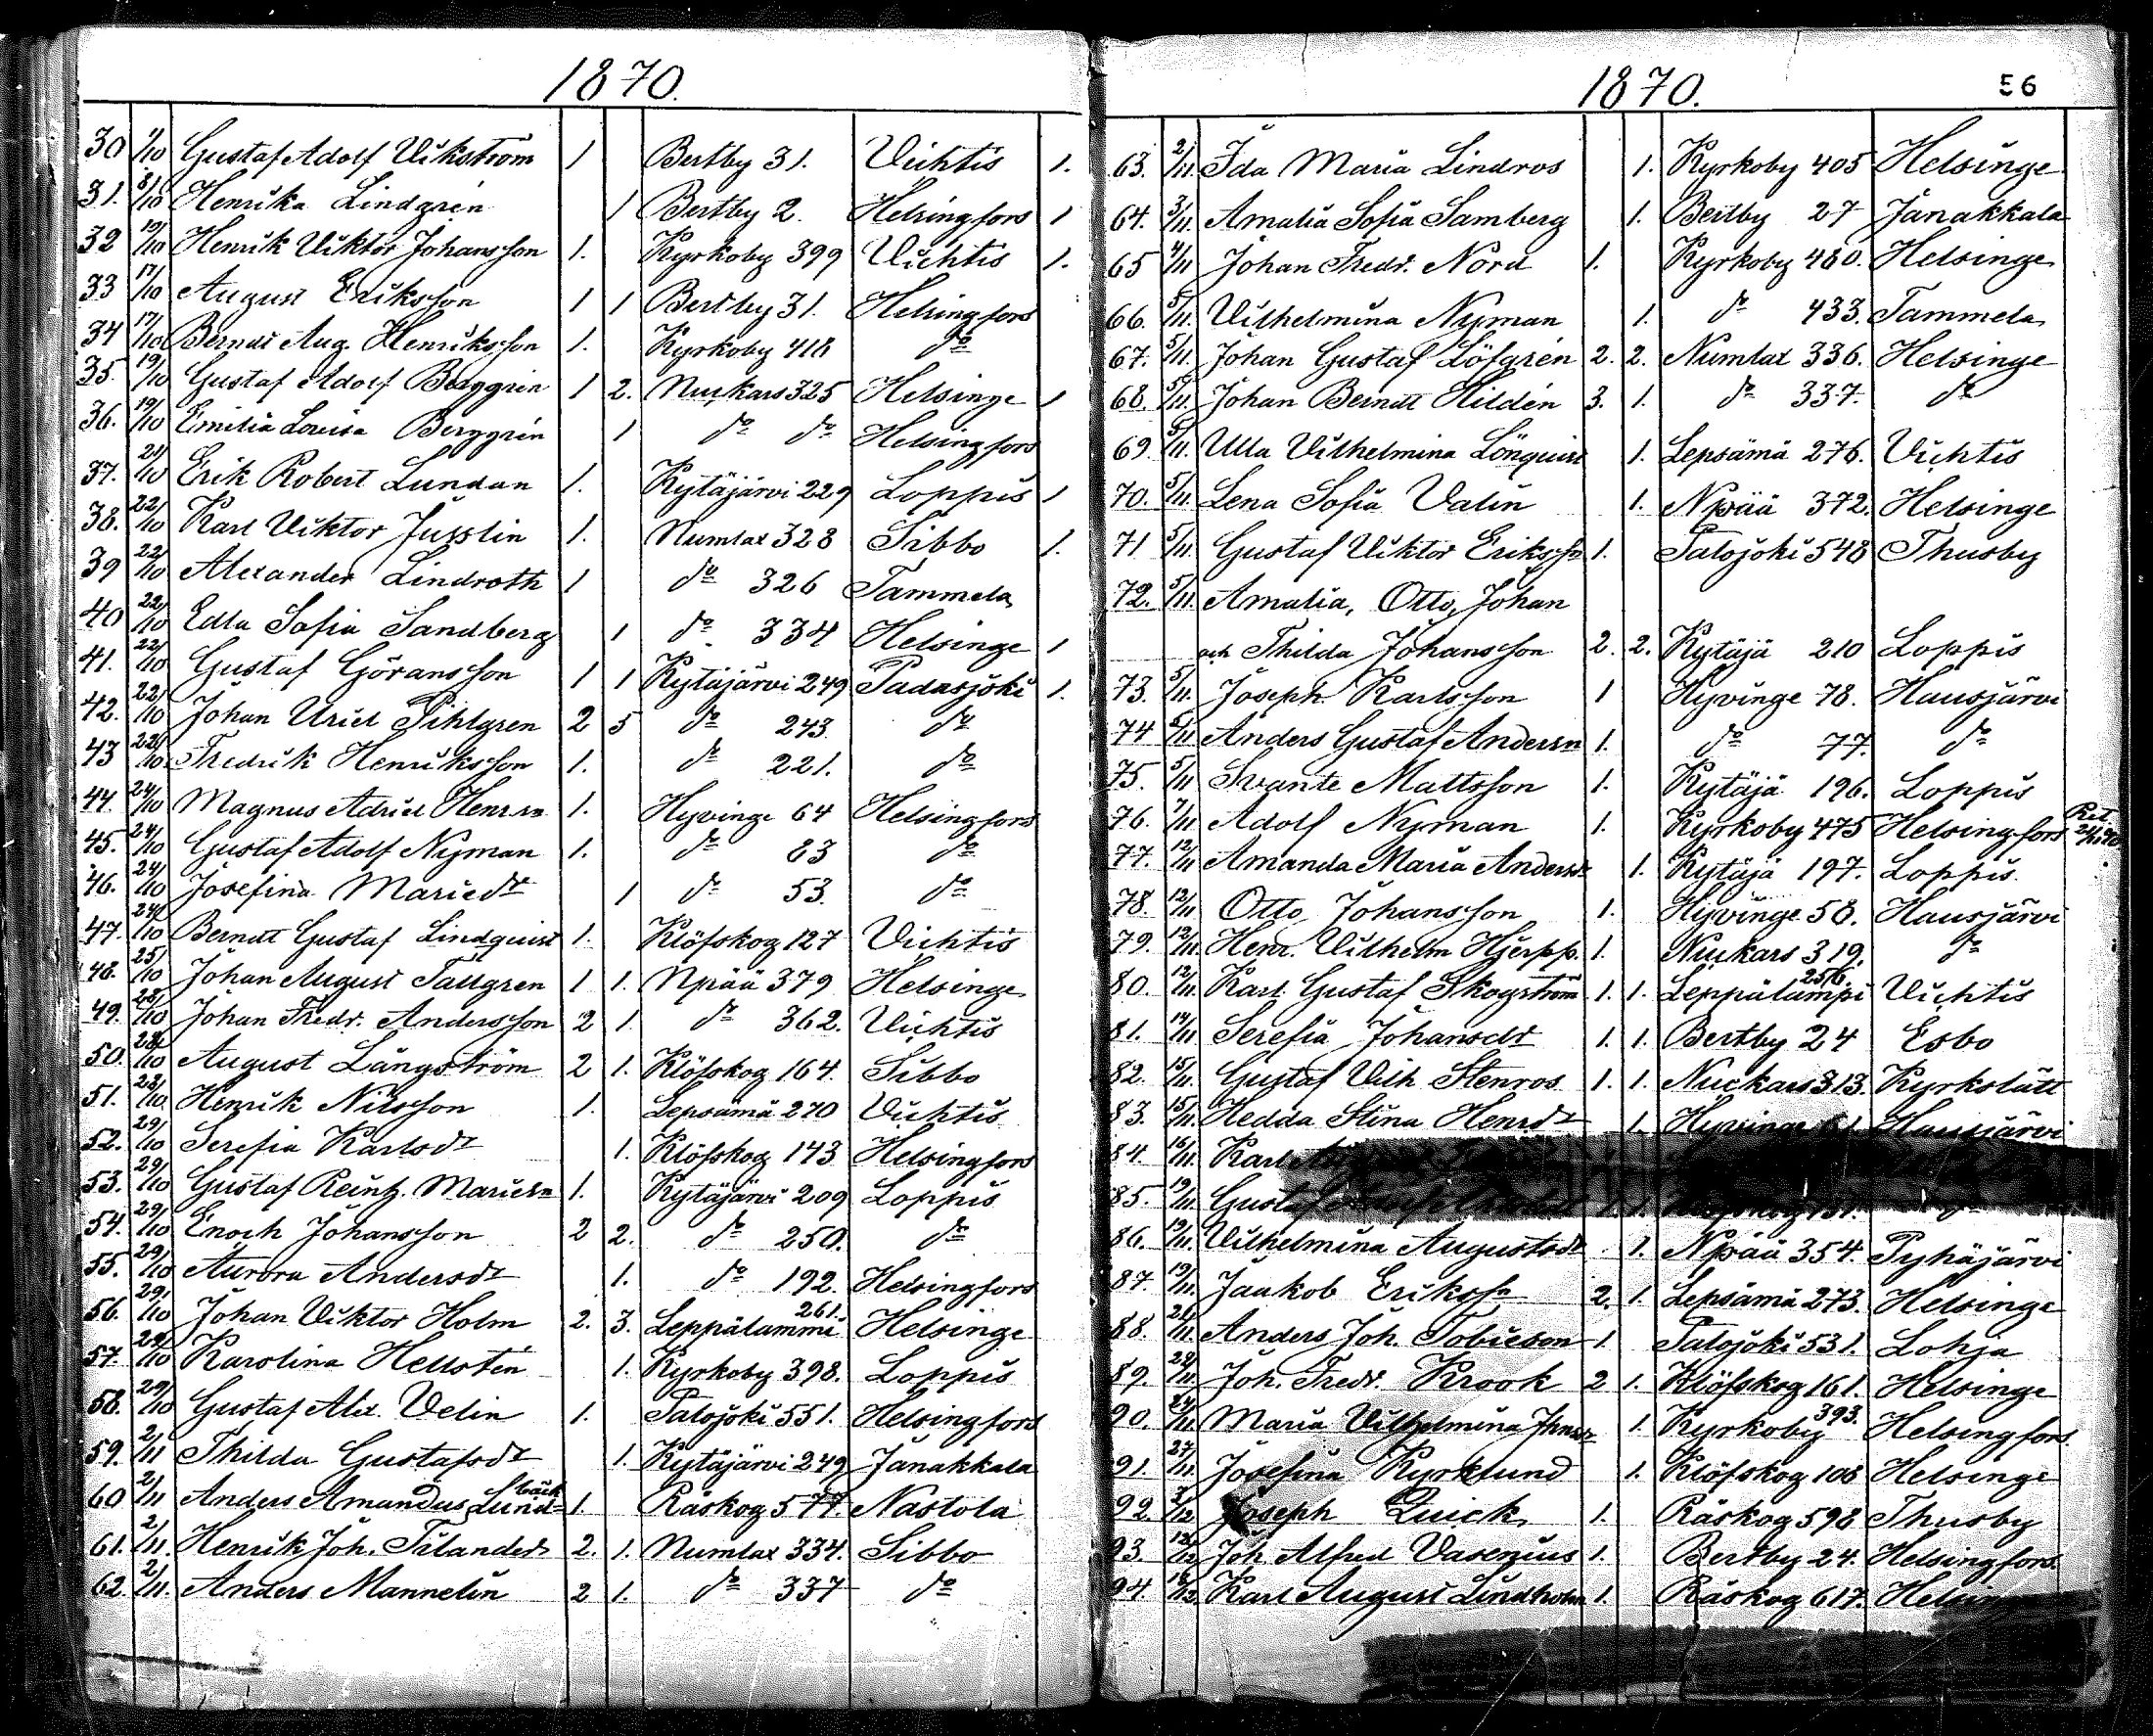 1870.
30 1/10 Gustaf Adolf Vikström 1 Bertby 31. Vichtis 1.
31. 8/10 Henrika Lindgrén 1 Bertby 2. Helsingfors 1
32 19/10 Henrik Viktor Johansson 1. Kyrkoby 399 Vichtis 1.
33 17/10 August Eriksson 1 1 Bertby 31. Helsingfors
34 17/10 Berndt Aug. Henriksson 1. Kyrkoby 418 do
35. 19/10 Gustaf Adolf Berggrén 1 2. Nuckars 325 Helsinge 1
36. 19/10 Emilia Lovisa Berggrén 1 do do Helsingfors
37. 21/10 Erik Robert Lundan 1. Kytäjärvi 229 Loppis 1
38. 22/10 Karl Viktor Jusslin 1. Numlax 328 Sibbo 1.
39 22/10 Alexander Lindroth 1 do 326 Tammela
40 22/10 Edla Sofia Sandberg 1 do 334 Helsinge 1
41. 22/10 Gustaf Göransson 1 1 Kytäjärvi 249 Padasjoki 1.
42. 22/10 Johan Uriel Pihlgren 2 5 do 243 do
43 22/10 Fredrik Henriksson 1. do 221. do
44. 24/10 Magnus Adriel Henr.sn 1. Hyvinge 64 Helsingfors
45. 24/10 Gustaf Adolf Nyman 1. do 63 do
46. 24/10 Josefina Mariedr 1 do 53. do
47. 24/10 Berndt Gustaf Lindquist 1. Klöfskog 127 Vichtis
48. 25/10 Johan August Tallgren 1 1. Npää 379 Helsinge
49. 28/10 Johan Fredr. Andersson 2 1. do 362. Vichtis
50. 28/10 August Långström 2 1. Klöfskog 164. Sibbo
51. 28/10 Henrik Nilsson 1. Lepsämä 270 Vichtis
52. 29/10 Serefia Karlsdr 1. Klöfskog 143 Helsingfors
53. 29/10 Gustaf Reinh. Mariesn 1. Kytäjärvi 209 Loppis
54. 29/10 Enoch Johansson 2 2. do 250. do
55. 29/10 Aurora Andersdr 1. do 192. Helsingfors
56. 29/10 Johan Viktor Holm 2. 3. Leppälammi 261. Helsinge
57. 29/10 Karolina Hellstén 1. Kyrkoby 398. Loppis
58. 29/10 Gustaf Alex. Velin 1. Palojoki 551. Helsingfors
59. 2/11 Thilda Gustafsdr 1. Kytäjärvi 249 Janakkala
60 2/11 Anders Amandus Lundbäck 1. Råskog 577. Nastola
61. 2/11. Henrik Joh. Tilander 2. 1. Numlax 334. Sibbo
62. 2/11. Anders Mannelin 2 1. do 337 do
1870. 56
63. 2/11. Ida Maria Lindros 1. Kyrkoby 405 Helsinge
64. 3/11. Amalia Sofia Samberg 1. Bertby 27 Janakkala
65 4/11 Johan Fredr. Nord 1. Kyrkoby 460. Helsinge
66. 5/11. Vilhelmina Nyman 1. do 433. Tammela
67. 5/11. Johan Gustaf Löfgrén 2. 2. Numlax 336. Helsinge
68. 5/11. Johan Berndt Hildén 3. 1. do 337. do
69. 5/11. Ulla Vilhelmina Lönquist 1. Lepsämä 276. Vichtis
70. 5/11. Lena Sofia Valin 1. Npää 372. Helsinge
71 5/11. Gustaf Viktor Erikssn 1. Palojoki 548 Thusby
72. 5/11. Amalia, Otto, Johan
och Thilda Johansson 2. 2. Kytäjä 210 Loppis
73. 5/11. Joseph Karlsson 1 Hyvinge 78. Hausjärvi
74 5/11 Anders Gustaf Andersn 1. do 77. do
75. 5/11 Svante Mattsson 1. Kytäjä 196. Loppis
76. 7/11 Adolf Nyman 1. Kyrkoby 475 Helsingfors Ret.
77. 12/11 Amanda Maria Andersdr 1. Kytäjä 197. Loppis.
78. 12/11 Otto Johansson 1. Hyvinge 58. Hausjärvi
79. 12/11. Henr. Vilhelm Hjerpp. 1. Nuckars 319. do
80. 12/11. Karl Gustaf Skogström 1. 1. Leppälampi 256. Vichtis
81. 14/11 Serefia Johansdr 1. 1. Bertby 24 Esbo
82. 15/11. Gustaf Vilh. Stenros 1. 1. Nuckars 313. Kyrkslätt
83. 15/11. Hedda Stina Henrsdr 1. Hyvinge 61. Hausjärvi
84. 16/11. Karl
85. 19/11 Gustaf 1. 1.
86. 19/11. Vilhelmina Augustsdr 1. Npää 354. Pyhäjärvi
87. 19/11. Jaakob Erikssn 2. 1. Lepsämä 273. Helsinge
88. 21/11. Anders Joh. Tobieson 1. Palojoki 531. Lohja
89. 22/11. Joh. Fredr. Krook 2 1. Klöfskog 161. Helsinge
90. 24/11. Maria Vilhelmina 1. Kyrkoby 393. Helsingfors
91. 27/11. Josefina Kyrklund 1. Klöfskog 108 Helsinge
92. 2/12 Joseph Quick 1. Råskog 598 Thusby
93 12/12 Joh. Alfred Vasenius 1. Bertby 24. Helsingfors.
94. 18/12. Karl August Lindholm 1. Råskog 617. Helsinge